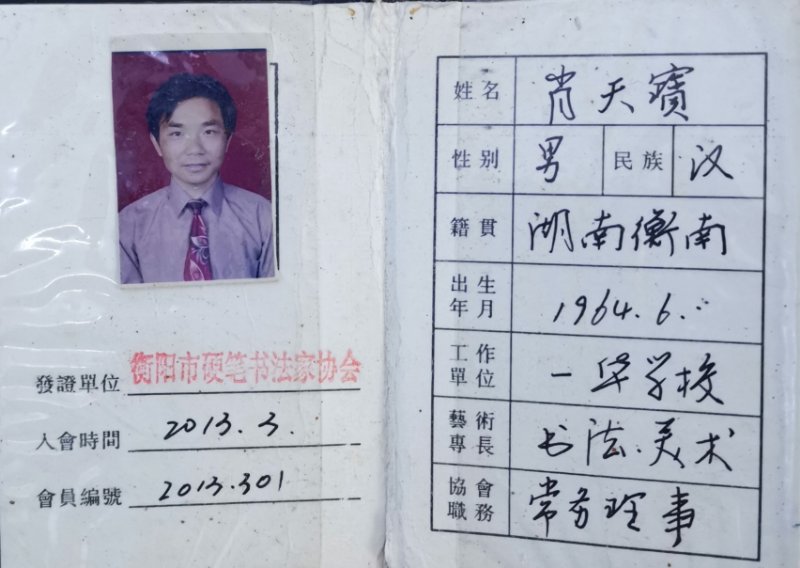 發證單位 衡阳市硬笔书法家协会
入會時間 2013.3.
會員编號 2013.301
姓名 肖天寶
性别 男 民族 汉
籍貫 湖南衡南
出生
年月 1964.6.
工作
單位 一华学校
藝術
專長 书法.美术
協會
職務 常务理事